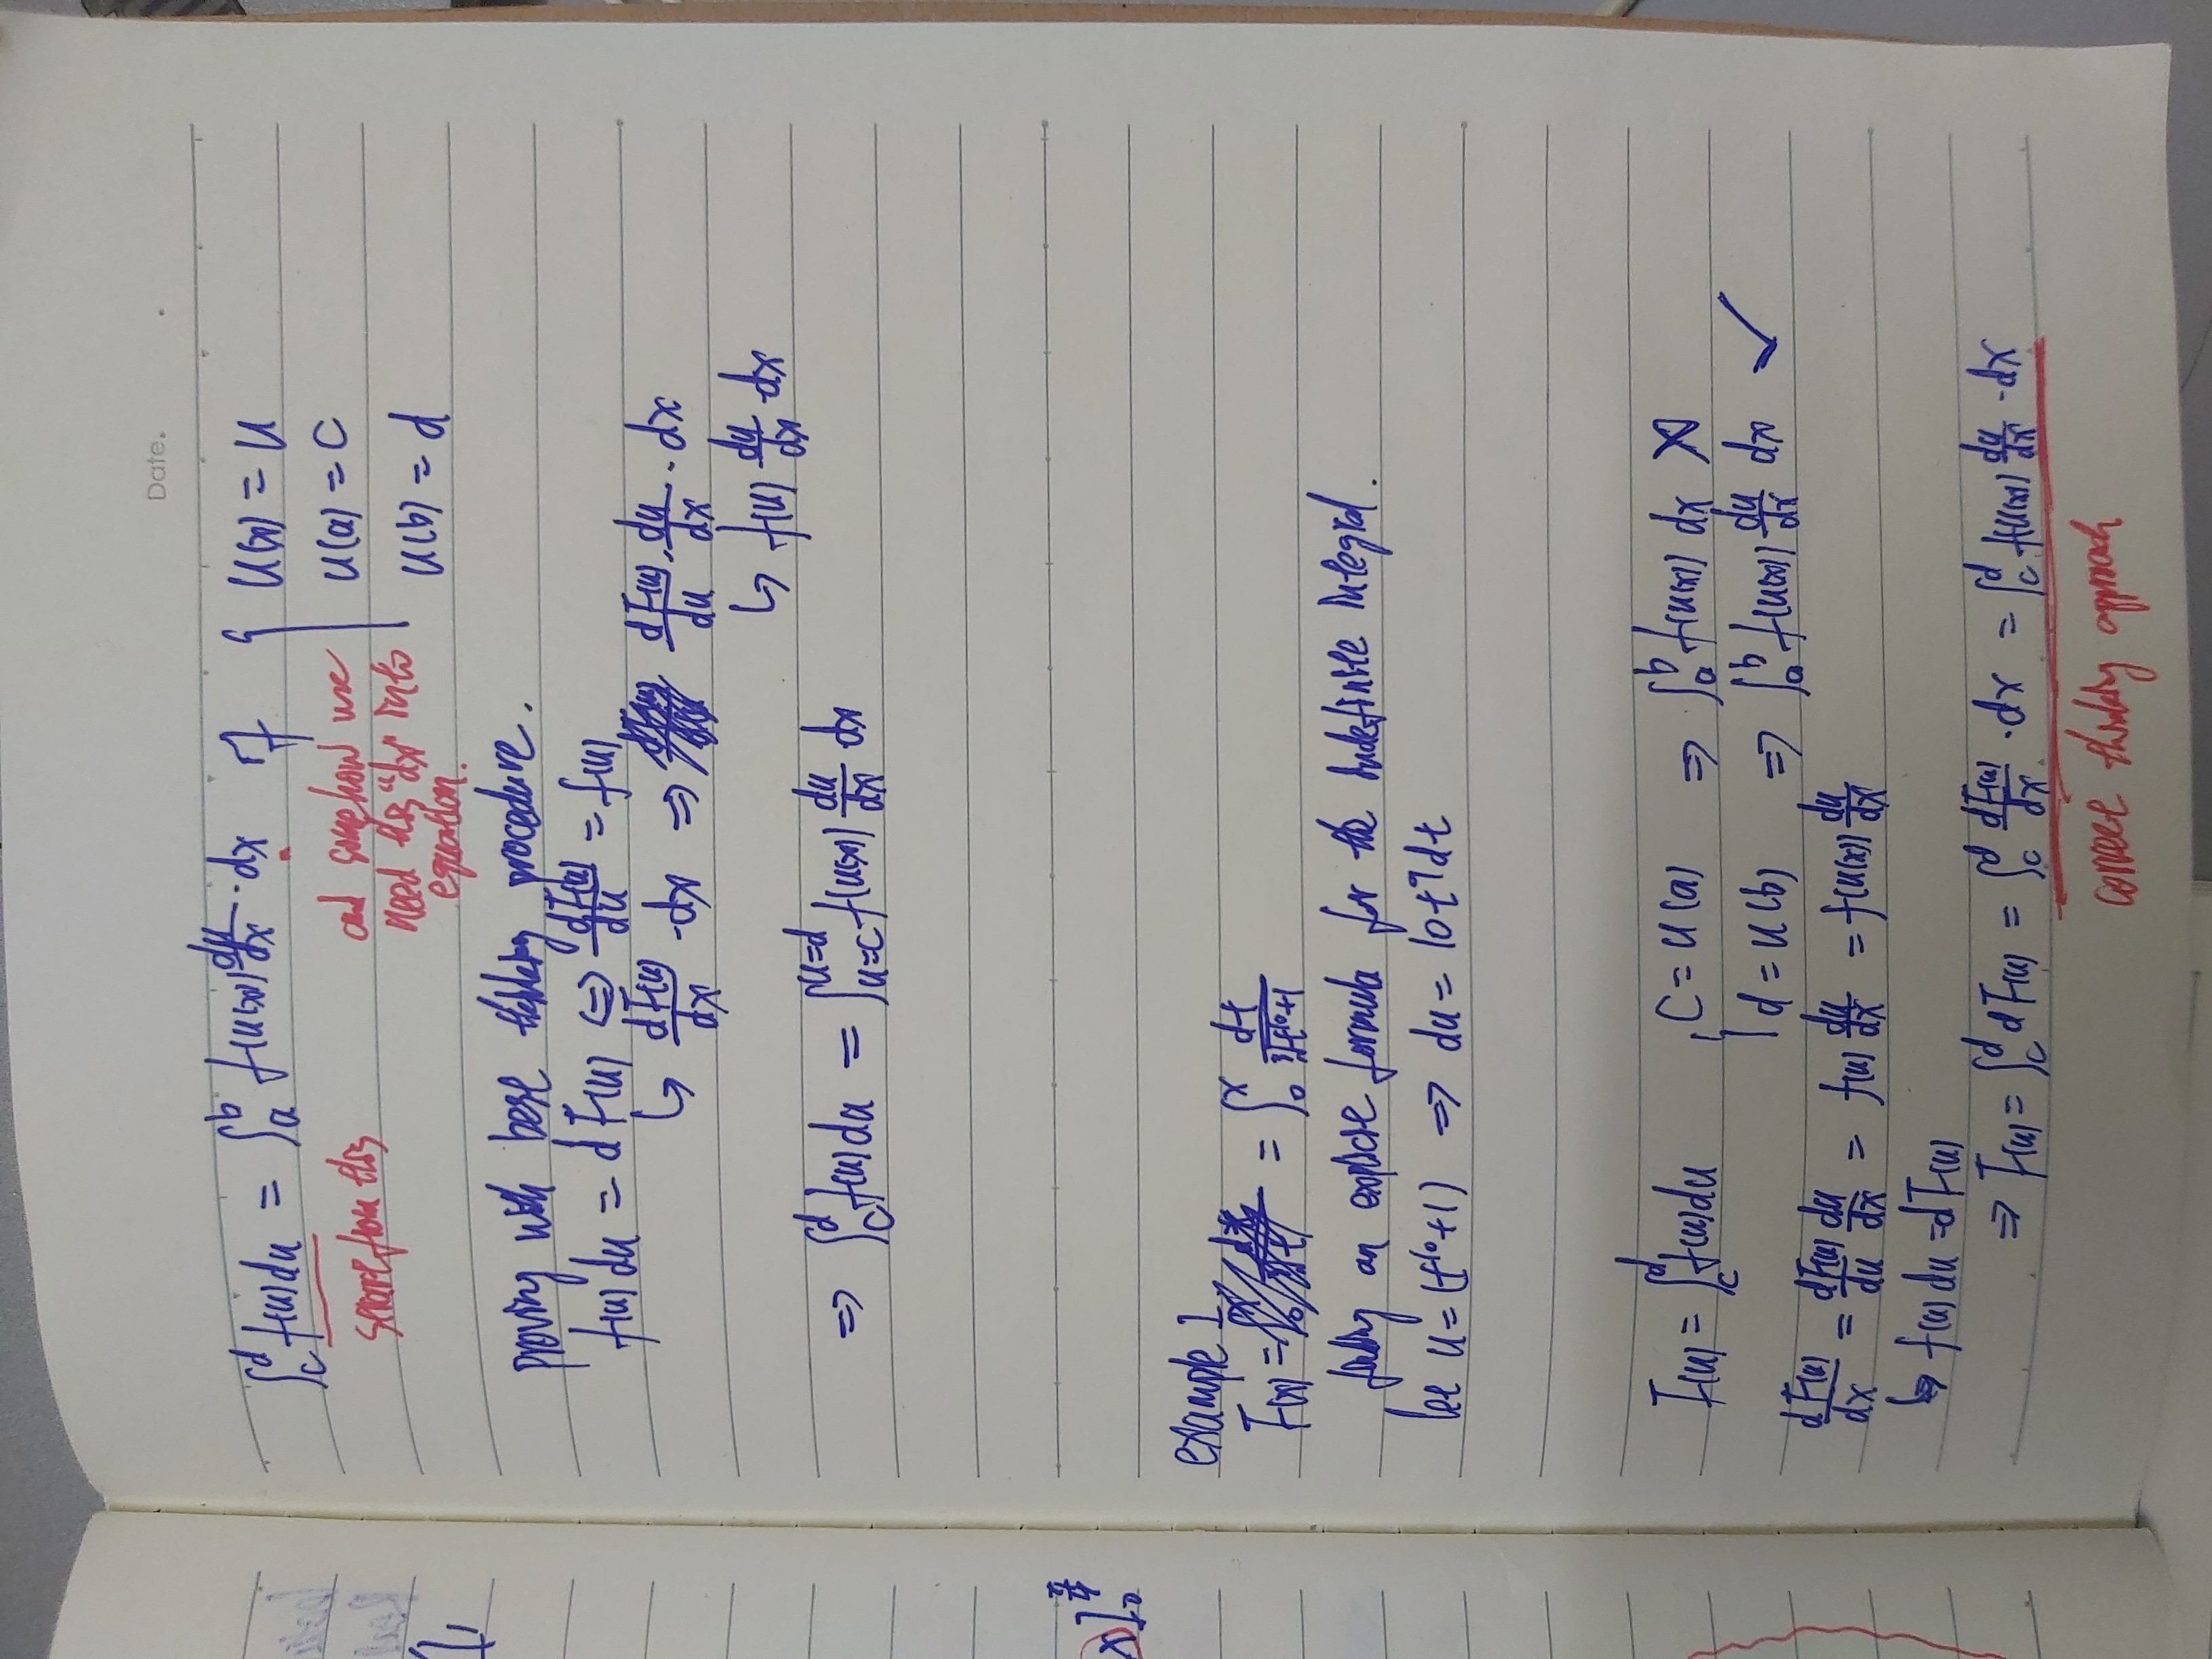 Date.
∫_c^d f(u) du = ∫_a^b f(u(x)) du/dx · dx if { u(x) = u
u(a) = c
u(b) = d
from this
and somehow we need this "dx" into equation.
proving with base thinking procedure.
f(u) du = dF(u) ⇔ dF(u)/du = f(u)
↳ dF(u)/dx · dx ⇒ dF(u)/du · du/dx · dx
↳ f(u) du/dx dx
⇒ ∫_c^d f(u) du = ∫_{u=c}^{u=d} f(u(x)) du/dx dx
x]_0^{π/4}
example 1.
F(x) = = ∫_0^x dt/∛(t^10+1)
finding an explicit formula for the indefinite integral.
let u = (t^10+1) ⇒ du = 10t^9 dt
F(u) = ∫_c^d f(u) du { c = u(a) ⇒ ∫_a^b f(u(x)) dx ✗
d = u(b) ⇒ ∫_a^b f(u(x)) du/dx dx ✓
dF(u)/dx = dF(u)/du du/dx = f(u) du/dx = f(u(x)) du/dx
↳ f(u) du = dF(u)
⇒ F(u) = ∫_c^d dF(u) = ∫_c^d dF(u)/dx · dx = ∫_c^d f(u(x)) du/dx · dx
correct thinking approach